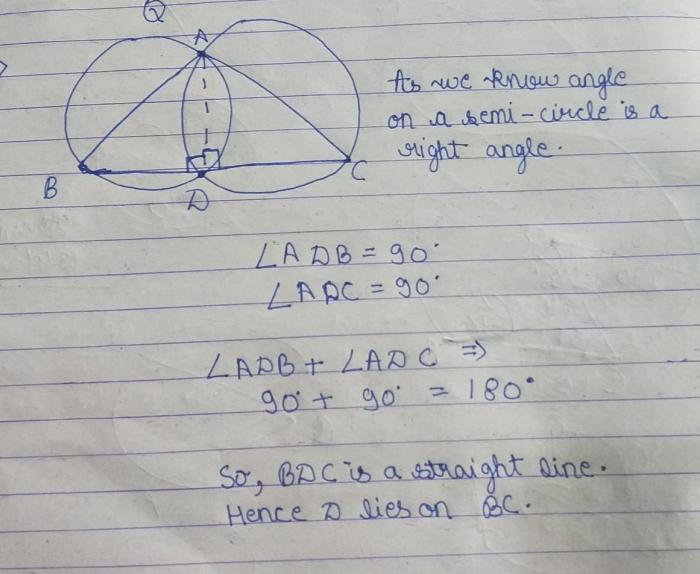 Q
A
B
D
C
As we know angle
on a semi-circle is a
right angle.
∠ADB = 90°
∠ADC = 90°
∠ADB + ∠ADC ⇒
90° + 90° = 180°
So, BDC is a straight line.
Hence D lies on BC.